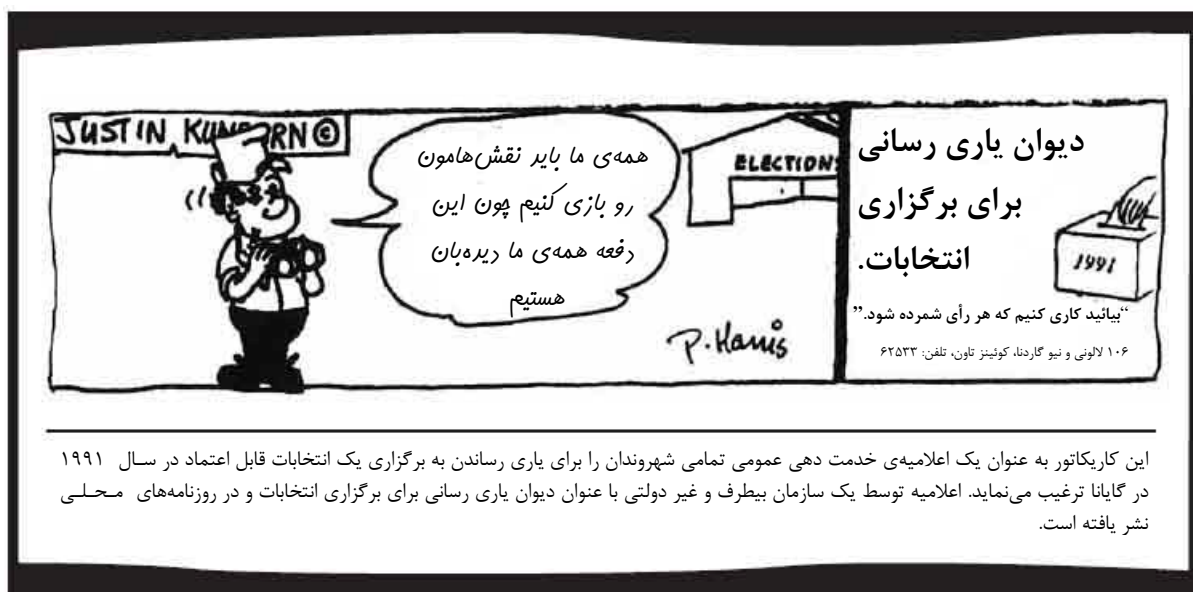 JUSTIN ©
همه‌ی ما باید نقش‌هامون
رو بازی کنیم چون این
دفعه همه‌ی ما دیده‌بان
هستیم
ELECTIONS
P. Harris
دیوان یاری رسانی
برای برگزاری
انتخابات.
1991
“بیائید کاری کنیم که هر رأی شمرده شود.”
۱۰۶ لالونی و نیو گاردنا، کوئینز تاون، تلفن: ۶۲۵۳۳
این کاریکاتور به عنوان یک اعلامیه‌ی خدمت دهی عمومی تمامی شهروندان را برای یاری رساندن به برگزاری یک انتخابات قابل اعتماد در سال ۱۹۹۱
در گایانا ترغیب می‌نماید. اعلامیه توسط یک سازمان بیطرف و غیر دولتی با عنوان دیوان یاری رسانی برای برگزاری انتخابات و در روزنامه‌های محلی
نشر یافته است.